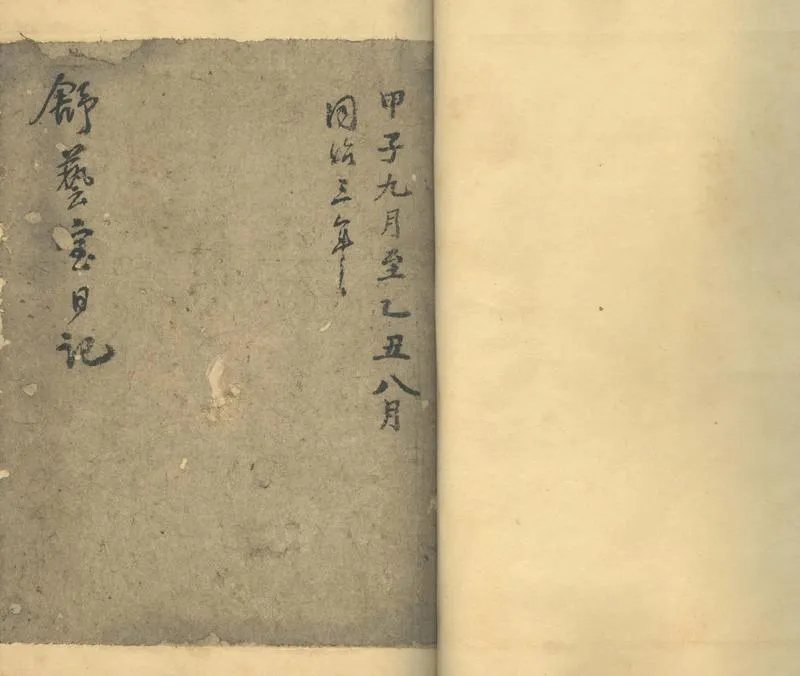 甲子九月至乙丑八月
同治三年
舒藝室日记